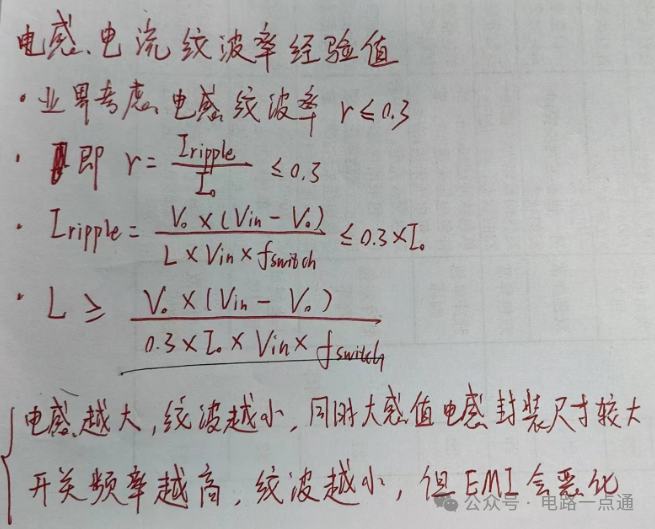 电感电流纹波率经验值
· 业界考虑电感纹波率 r≤0.3
· 即 r = Iripple / Io ≤ 0.3
· Iripple = Vo×(Vin-Vo) / L×Vin×fswitch ≤ 0.3×Io
· L ≥ Vo×(Vin-Vo) / 0.3×Io×Vin×fswitch
电感越大,纹波越小,同时大感值电感封装尺寸较大
开关频率越高,纹波越小,但EMI会恶化
公众号·电路一点通